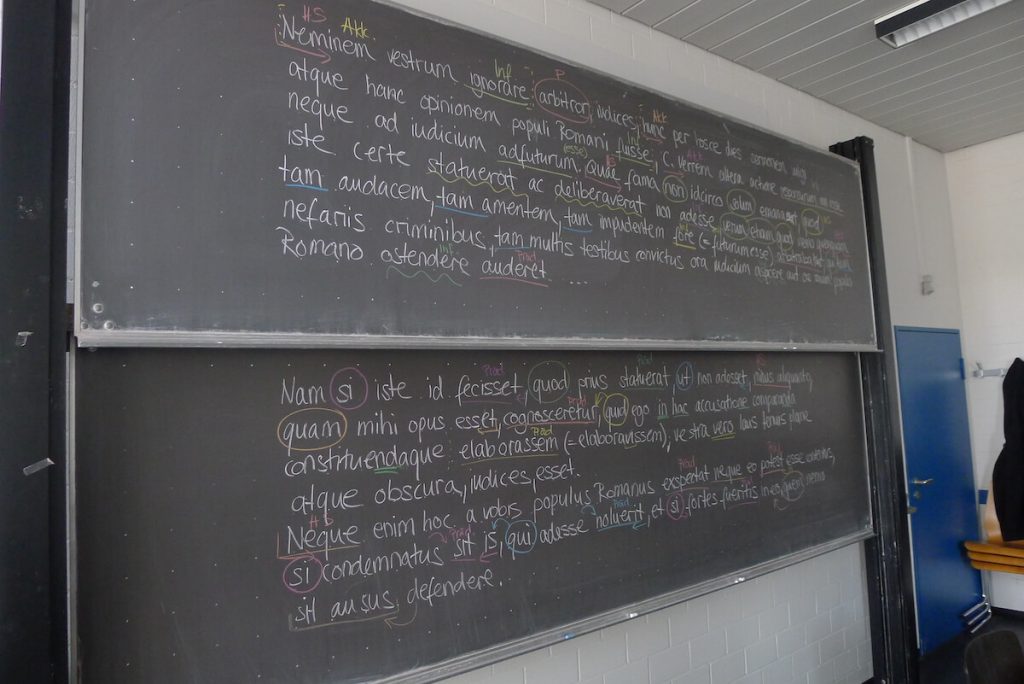 HS Akk Inf P Akk
Neminem vestrum ignorare arbitror, iudices, hunc per hosce dies sermonem vulgi
atque hanc opinionem populi Romani fuisse, C. Verrem altera actione responsurum non esse
neque ad iudicium adfuturum, quae fama non idcirco solum emanarat quod
iste certe statuerat ac deliberaverat non adesse, verum etiam quod nemo quemquam
tam audacem, tam amentem, tam impudentem fore (=futurum esse) arbitrabatur, qui tam
nefariis criminibus, tam multis testibus convictus ora iudicum aspicere aut os suum populo
Inf Präd
Romano ostendere auderet ...
Präd Präd HS
Nam si iste id fecisset, quod prius statuerat ut non adesset, minus aliquanto,
Präd
quam mihi opus esset, cognosceretur, quid ego in hac accusatione comparanda
Präd
constituendaque elaborassem (=elaboravissem), vestra vero laus tenuis plane
atque obscura, iudices, esset.
HS Präd Präd
Neque enim hoc a vobis populus Romanus exspectat neque eo potest esse contentus,
Präd Präd
si condemnatus sit is, qui adesse noluerit, et si fortes fueritis in eo, quem nemo
sit ausus defendere.